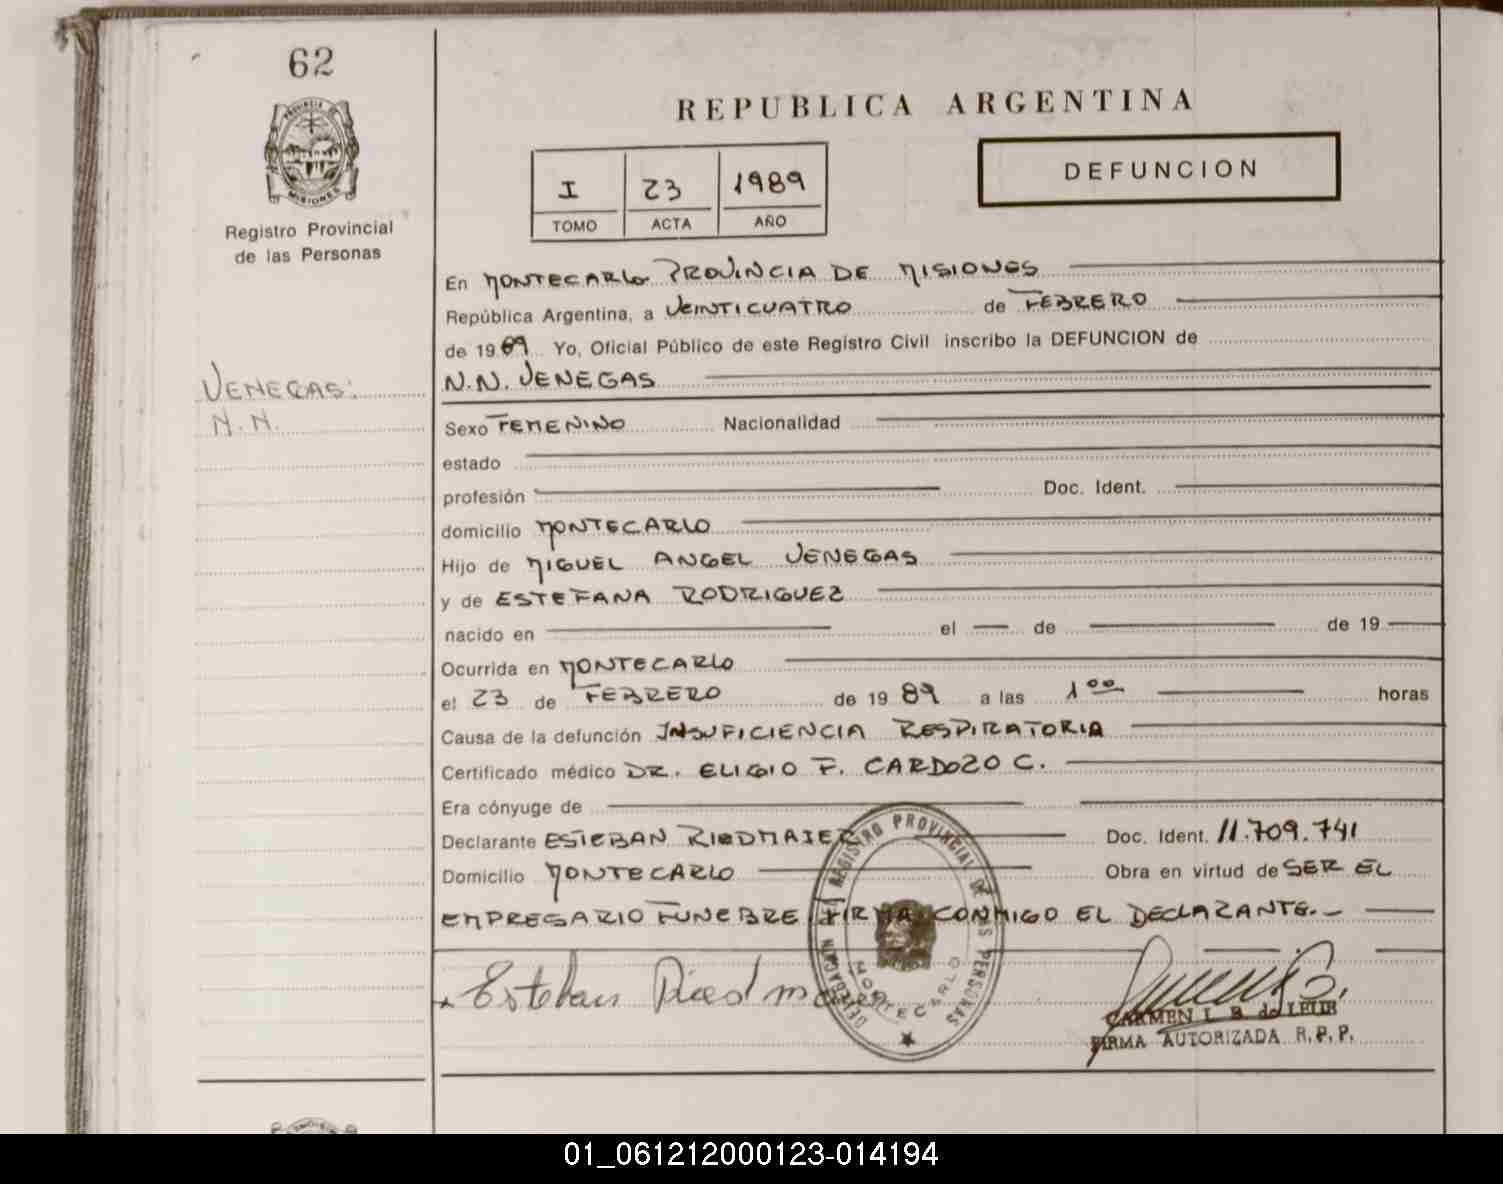 62
PROVINCIA DE
MISIONES
Registro Provincial
de las Personas
VENEGAS:
N.N.
REPUBLICA ARGENTINA
I 23 1989
TOMO ACTA AÑO
DEFUNCION
En MONTECARLO PROVINCIA DE MISIONES
República Argentina, a VEINTICUATRO de FEBRERO
de 1989 Yo, Oficial Público de este Registro Civil inscribo la DEFUNCION de
N.N. VENEGAS
Sexo FEMENINO Nacionalidad
estado
profesión Doc. Ident.
domicilio MONTECARLO
Hijo de MIGUEL ANGEL VENEGAS
y de ESTEFANA RODRIGUEZ
nacido en el de de 19
Ocurrida en MONTECARLO
el 23 de FEBRERO de 1989 a las 1 00 horas
Causa de la defunción INSUFICIENCIA RESPIRATORIA
Certificado médico DR. ELIGIO F. CARDOZO C.
Era cónyuge de
Declarante ESTEBAN RIEDMAIER Doc. Ident. 11.709.741
Domicilio MONTECARLO Obra en virtud de SER EL
EMPRESARIO FUNEBRE FIRMA CONMIGO EL DECLARANTE.-
Esteban Riedmaier
DELEGACION DEL REGISTRO PROVINCIAL DE LAS PERSONAS
MONTECARLO
CARMEN L. B. de LEIB
FIRMA AUTORIZADA R. P. P.
01_061212000123-014194